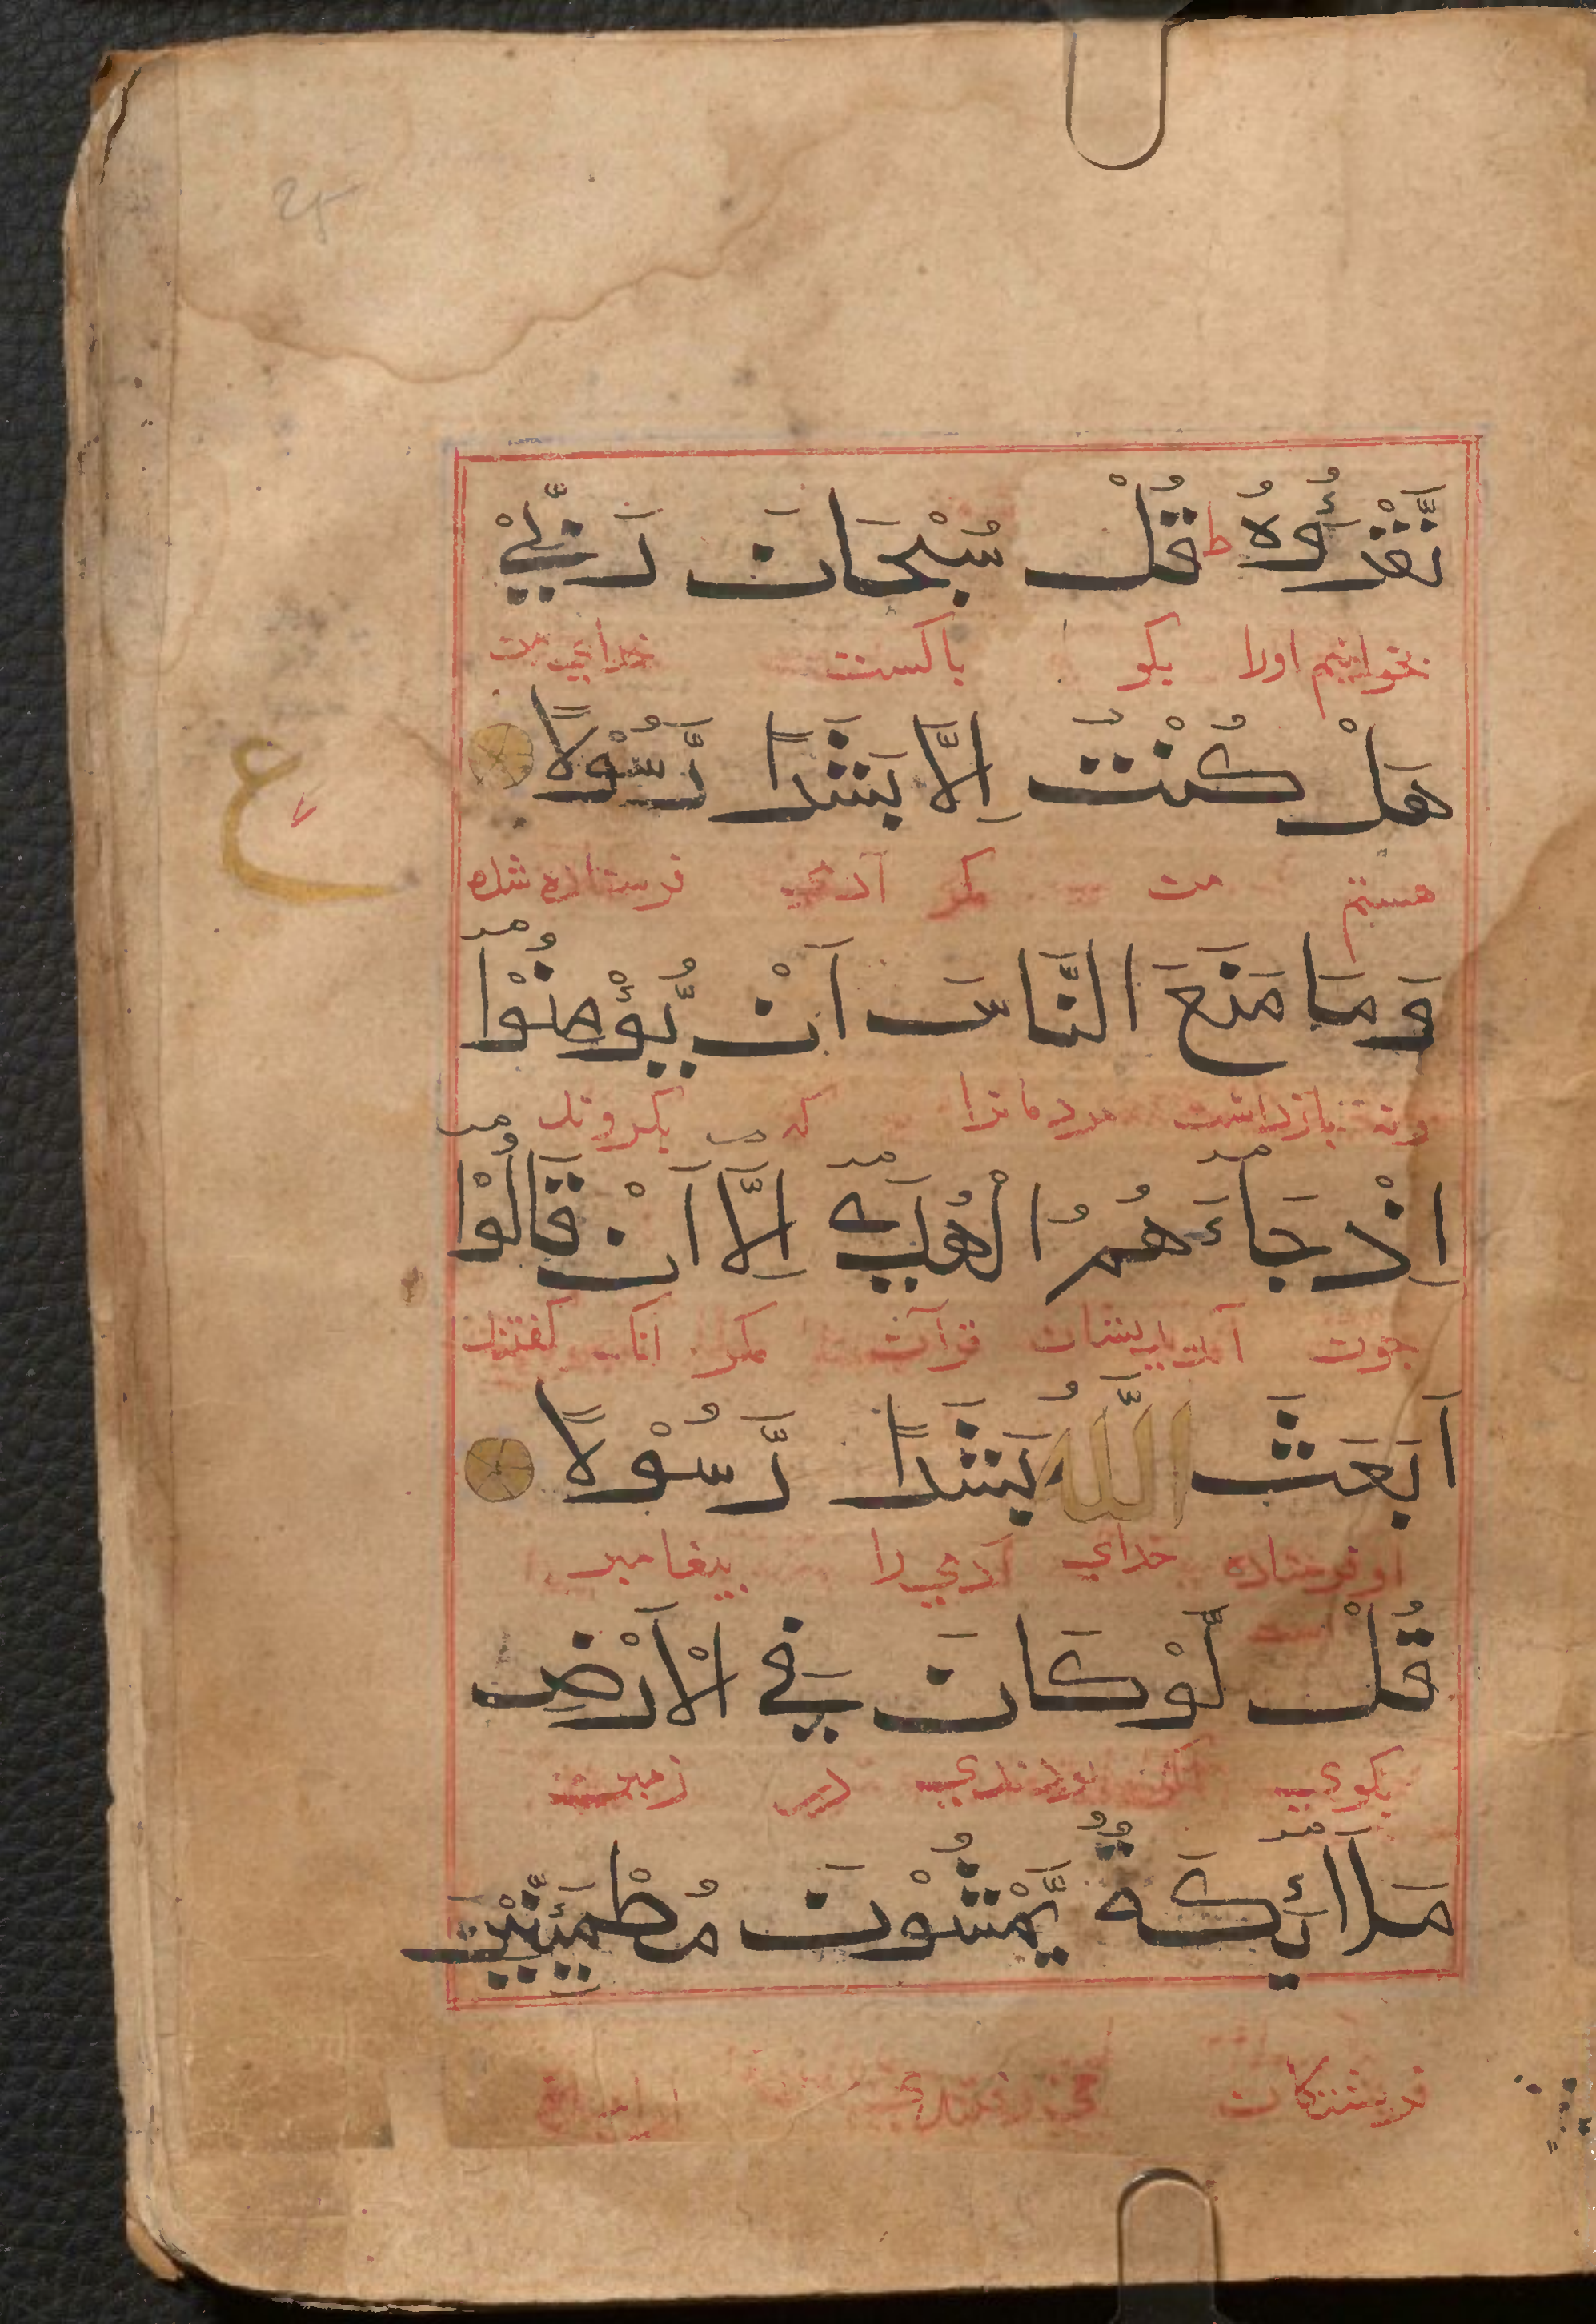 نَّقْرَؤُهٗ ط قُلْ سُبْحَانَ رَبِّيْ
بخوانیم اورا بکو باکست خدای من
هَلْ كُنْتُ اِلَّا بَشَرًا رَّسُوْلًا
ع
هستم من مکر آدمی فرستاده شده
وَمَا مَنَعَ النَّاسَ اَنْ يُّؤْمِنُوْا
ونه بازداشت مردمانرا که بکروند
اِذْ جَآءَهُمُ الْهُدٰى اِلَّا اَنْ قَالُوْا
چون آمد بایشان قرآن مکر انک کفتند
اَبَعَثَ اللّٰهُ بَشَرًا رَّسُوْلًا
او فرستاده خدای آدمی را بیغامبر
است
قُلْ لَّوْ كَانَ فِي الْاَرْضِ
بکوی اکر بودندی در زمین
مَلَآئِكَةٌ يَّمْشُوْنَ مُطْمَئِنِّيْنَ
فریشتکان می رفتندی